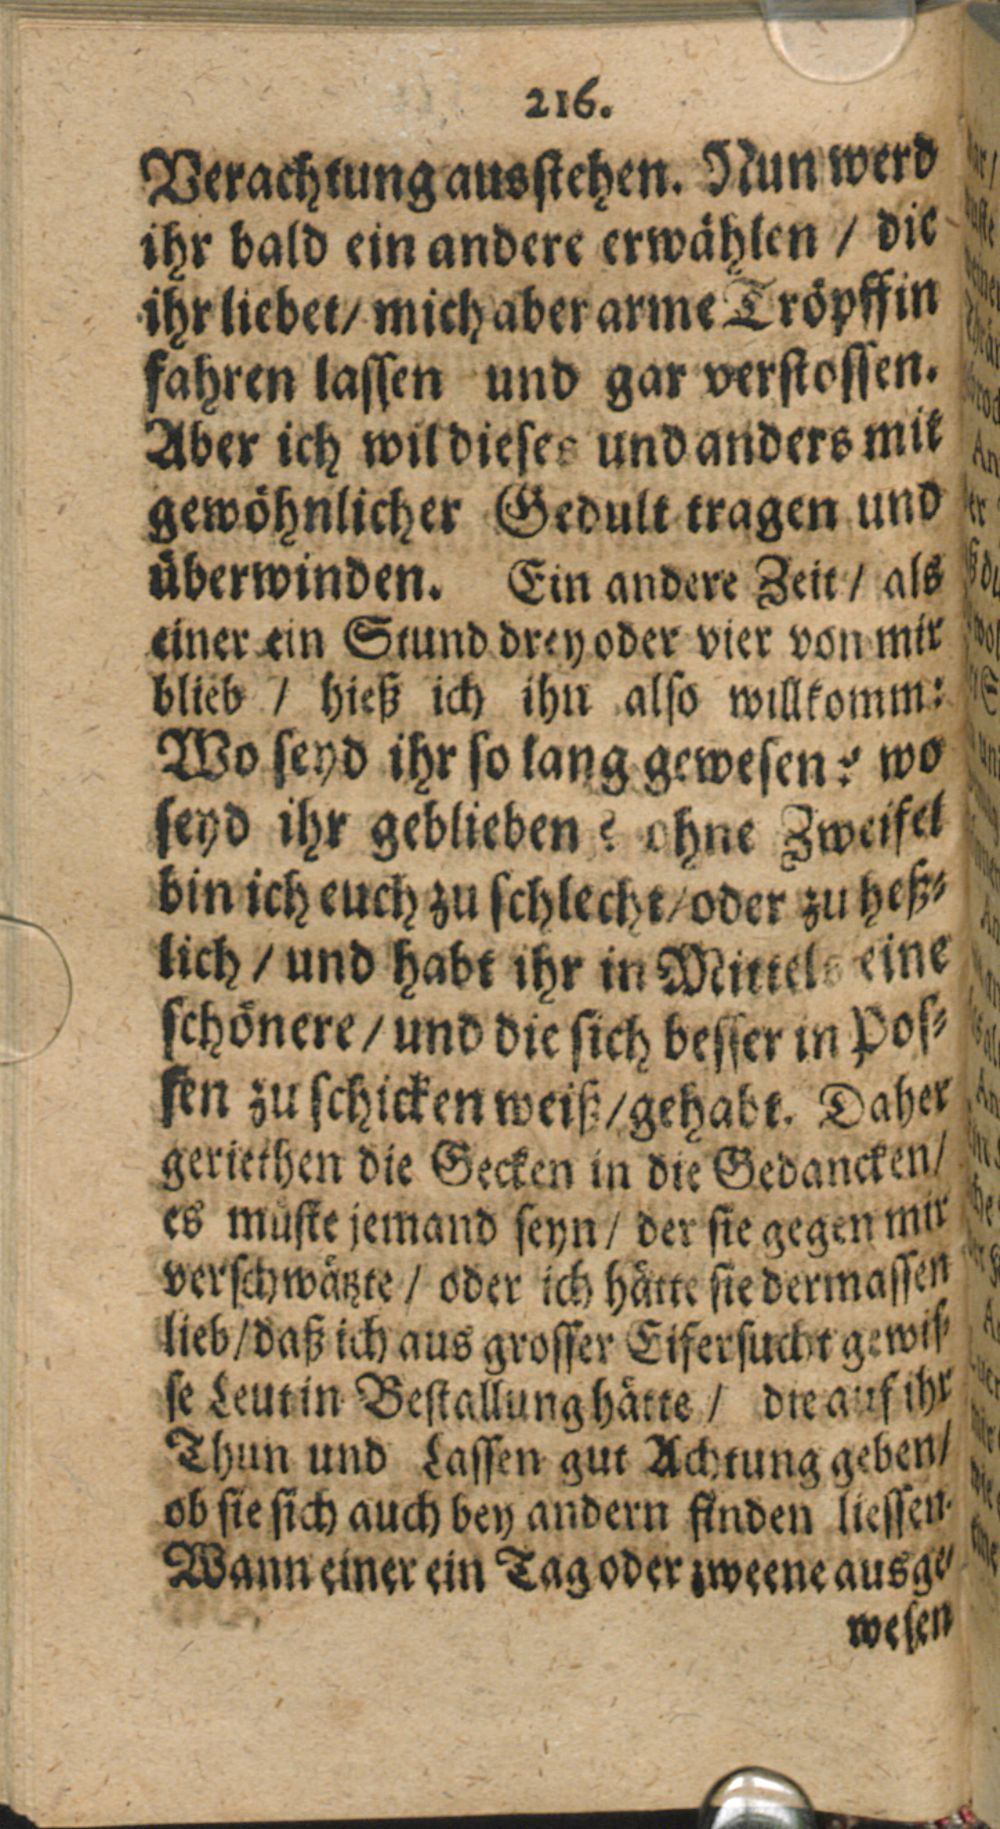 216.
Verachtung ausstehen. Nun werd
ihr bald ein andere erwählen / die
ihr liebet/ mich aber arme Tröpffin
fahren lassen und gar verstossen.
Aber ich wil dieses und anders mit
gewöhnlicher Gedult tragen und
überwinden. Ein andere Zeit / als
einer ein Stund drey oder vier von mir
blieb / hieß ich ihn also willkomm:
Wo seyd ihr so lang gewesen? wo
seyd ihr geblieben? ohne Zweifel
bin ich euch zu schlecht/ oder zu heß⸗
lich / und habt ihr in Mittels eine
schönere / und die sich besser in Pos⸗
sen zu schicken weiß / gehabt. Daher
geriethen die Gecken in die Gedancken/
es muste jemand seyn / der sie gegen mir
verschwätzte / oder ich hätte sie dermassen
lieb/ daß ich aus grosser Eifersucht gewis⸗
se Leut in Bestallung hätte / die auf ihr
Thun und Lassen gut Achtung geben/
ob sie sich auch bey andern finden liessen.
Wann einer ein Tag oder zweene ausge⸗
wesen